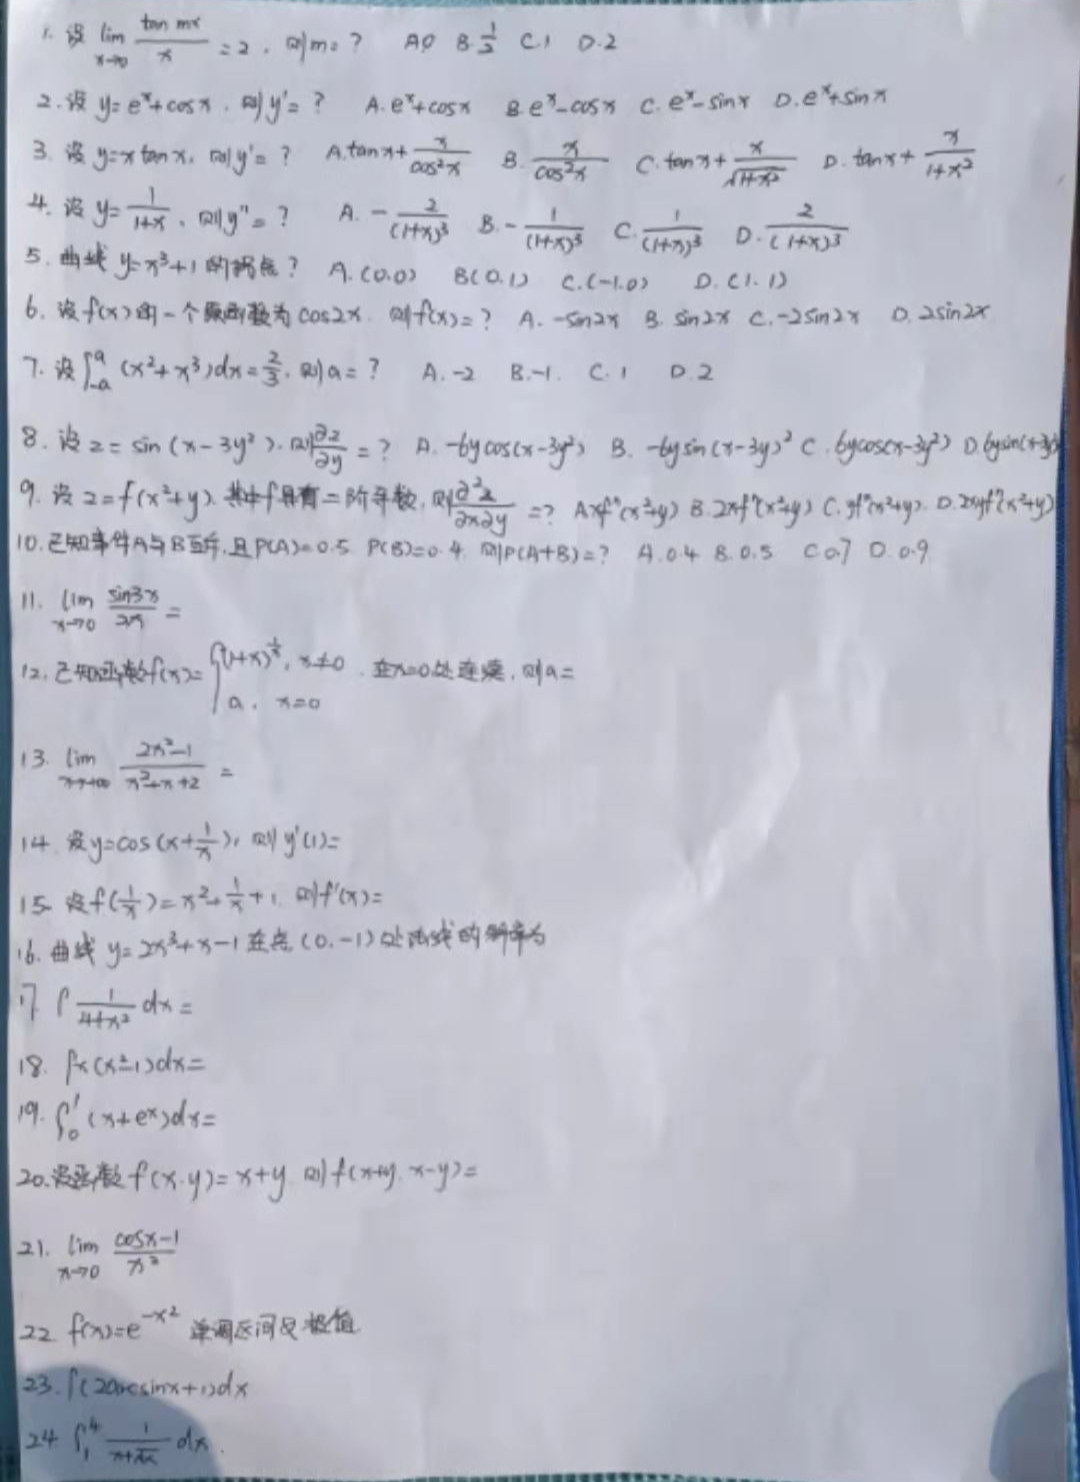 1. 设 lim x→0 tan mx / x = 2, 则m=? A.0 B.1/2 C.1 D.2
2. 设 y=e^x+cosx, 则y'=? A.e^x+cosx B.e^x-cosx C.e^x-sinx D.e^x+sinx
3. 设 y=xtanx, 则y'=? A.tanx+x/cos²x B.x/cos²x C.tanx+x/√(1+x²) D.tanx+x/(1+x²)
4. 设 y=1/(1+x), 则y''=? A.-2/(1+x)³ B.-1/(1+x)³ C.1/(1+x)³ D.2/(1+x)³
5. 曲线 y=x³+1的拐点? A.(0.0) B(0.1) C.(-1.0) D.(1.1)
6. 设f(x)的一个原函数为cos2x. 则f(x)=? A.-sin2x B.sin2x C.-2sin2x D.2sin2x
7. 设∫_{-a}^{a}(x²+x³)dx=2/3, 则a=? A.-2 B.-1. C.1 D.2
8. 设z=sin(x-3y²). 则∂z/∂y=? A.-6ycos(x-3y²) B.-6ysin(x-3y)² C.6ycos(x-3y²) D.6ysin(x-3y
9. 设z=f(x²+y). 其中f具有二阶导数, 则∂²z/∂x∂y=? A.xf''(x²+y) B.2xf''(x²+y) C.yf''(x²+y). D.2xyf''(x²+y)
10. 已知事件A与B互斥, 且P(A)=0.5. P(B)=0.4. 则P(A+B)=? A.0.4 B.0.5 C.0.7 D.0.9
11. lim x→0 sin3x/2x =
12. 已知函数f(x)={(1+x)^{1/x}, x≠0 . 在x=0处连续, 则a=
a. x=0
13. lim x→∞ (2x²-1)/(x²+x+2) =
14. 设y=cos(x+1/x), 则y'(1)=
15. 设f(1/x)=x²+1/x+1, 则f'(x)=
16. 曲线 y=2x³+x-1在点(0.-1)处法线的斜率为
17. ∫1/(4+x²)dx=
18. ∫x(x²-1)dx=
19. ∫_0^1(x+e^x)dx=
20. 设函数f(x.y)=x+y. 则f(x+y. x-y)=
21. lim x→0 (cosx-1)/x²
22 f(x)=e^{-x²} 单调区间及极值
23. ∫(2arcsinx+1)dx
24 ∫_1^4 1/(x+√x)dx.